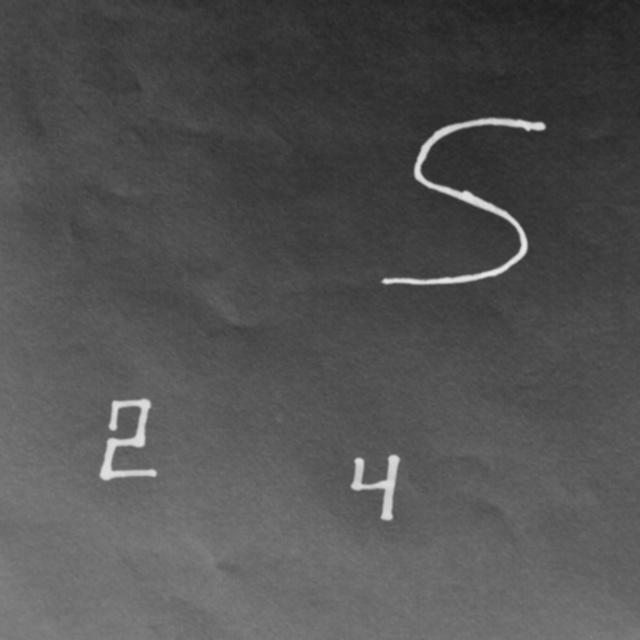 S
2 4